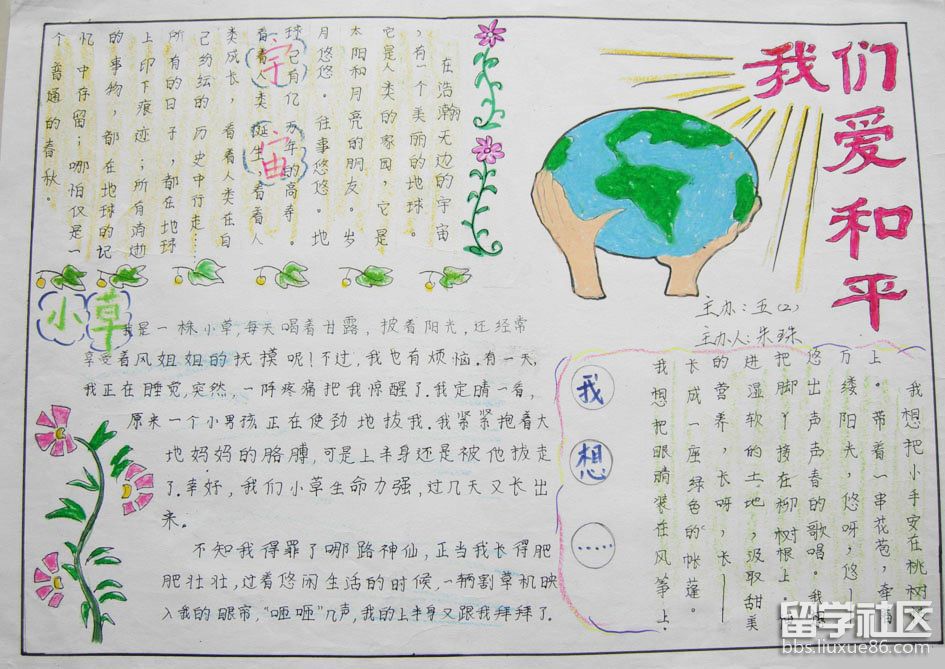 我们爱和平
主办:五(2)
主办人:朱珠
宇宙
在浩瀚无边的宇宙
,有一个美丽的地球。
它是人类的家园,它是
太阳和月亮的朋友。岁
月悠悠。往事悠悠。地
球已有亿万年的高寿。
看着人类诞生,看着人
类成长,看着人类在自
己纷纭的历史中行走……
所有的日子,都在地球
上印下痕迹;所有消逝
的事物,都在地球的记
忆中存留;哪怕仅是一
个普通的春秋。
小草
我是一株小草,每天喝着甘露,披着阳光,还经常
享受着风姐姐的抚摸呢!不过,我也有烦恼。有一天,
我正在睡觉,突然,一阵疼痛把我惊醒了.我定睛一看,
原来一个小男孩正在使劲地拔我.我紧紧抱着大
地妈妈的胳膊,可是上半身还是被他拔走
了.幸好,我们小草生命力强,过几天又长出
来.
不知我得罪了哪路神仙,正当我长得肥
肥壮壮,过着悠闲生活的时候,一辆割草机映
入我的眼帘,"咂咂"几声,我的上半身又跟我拜拜了.
我想……
我想把小手安在桃树
上。带着一串花苞,牵
万缕阳光,悠呀,悠—
悠出声声春的歌唱。我
把脚丫接在柳树根上
进湿软的土地,汲取甜美
的营养,长呀,长——
长成一座绿色的帐篷。
我想把眼睛装在风筝上.
留学社区
bbs.liuxue86.com